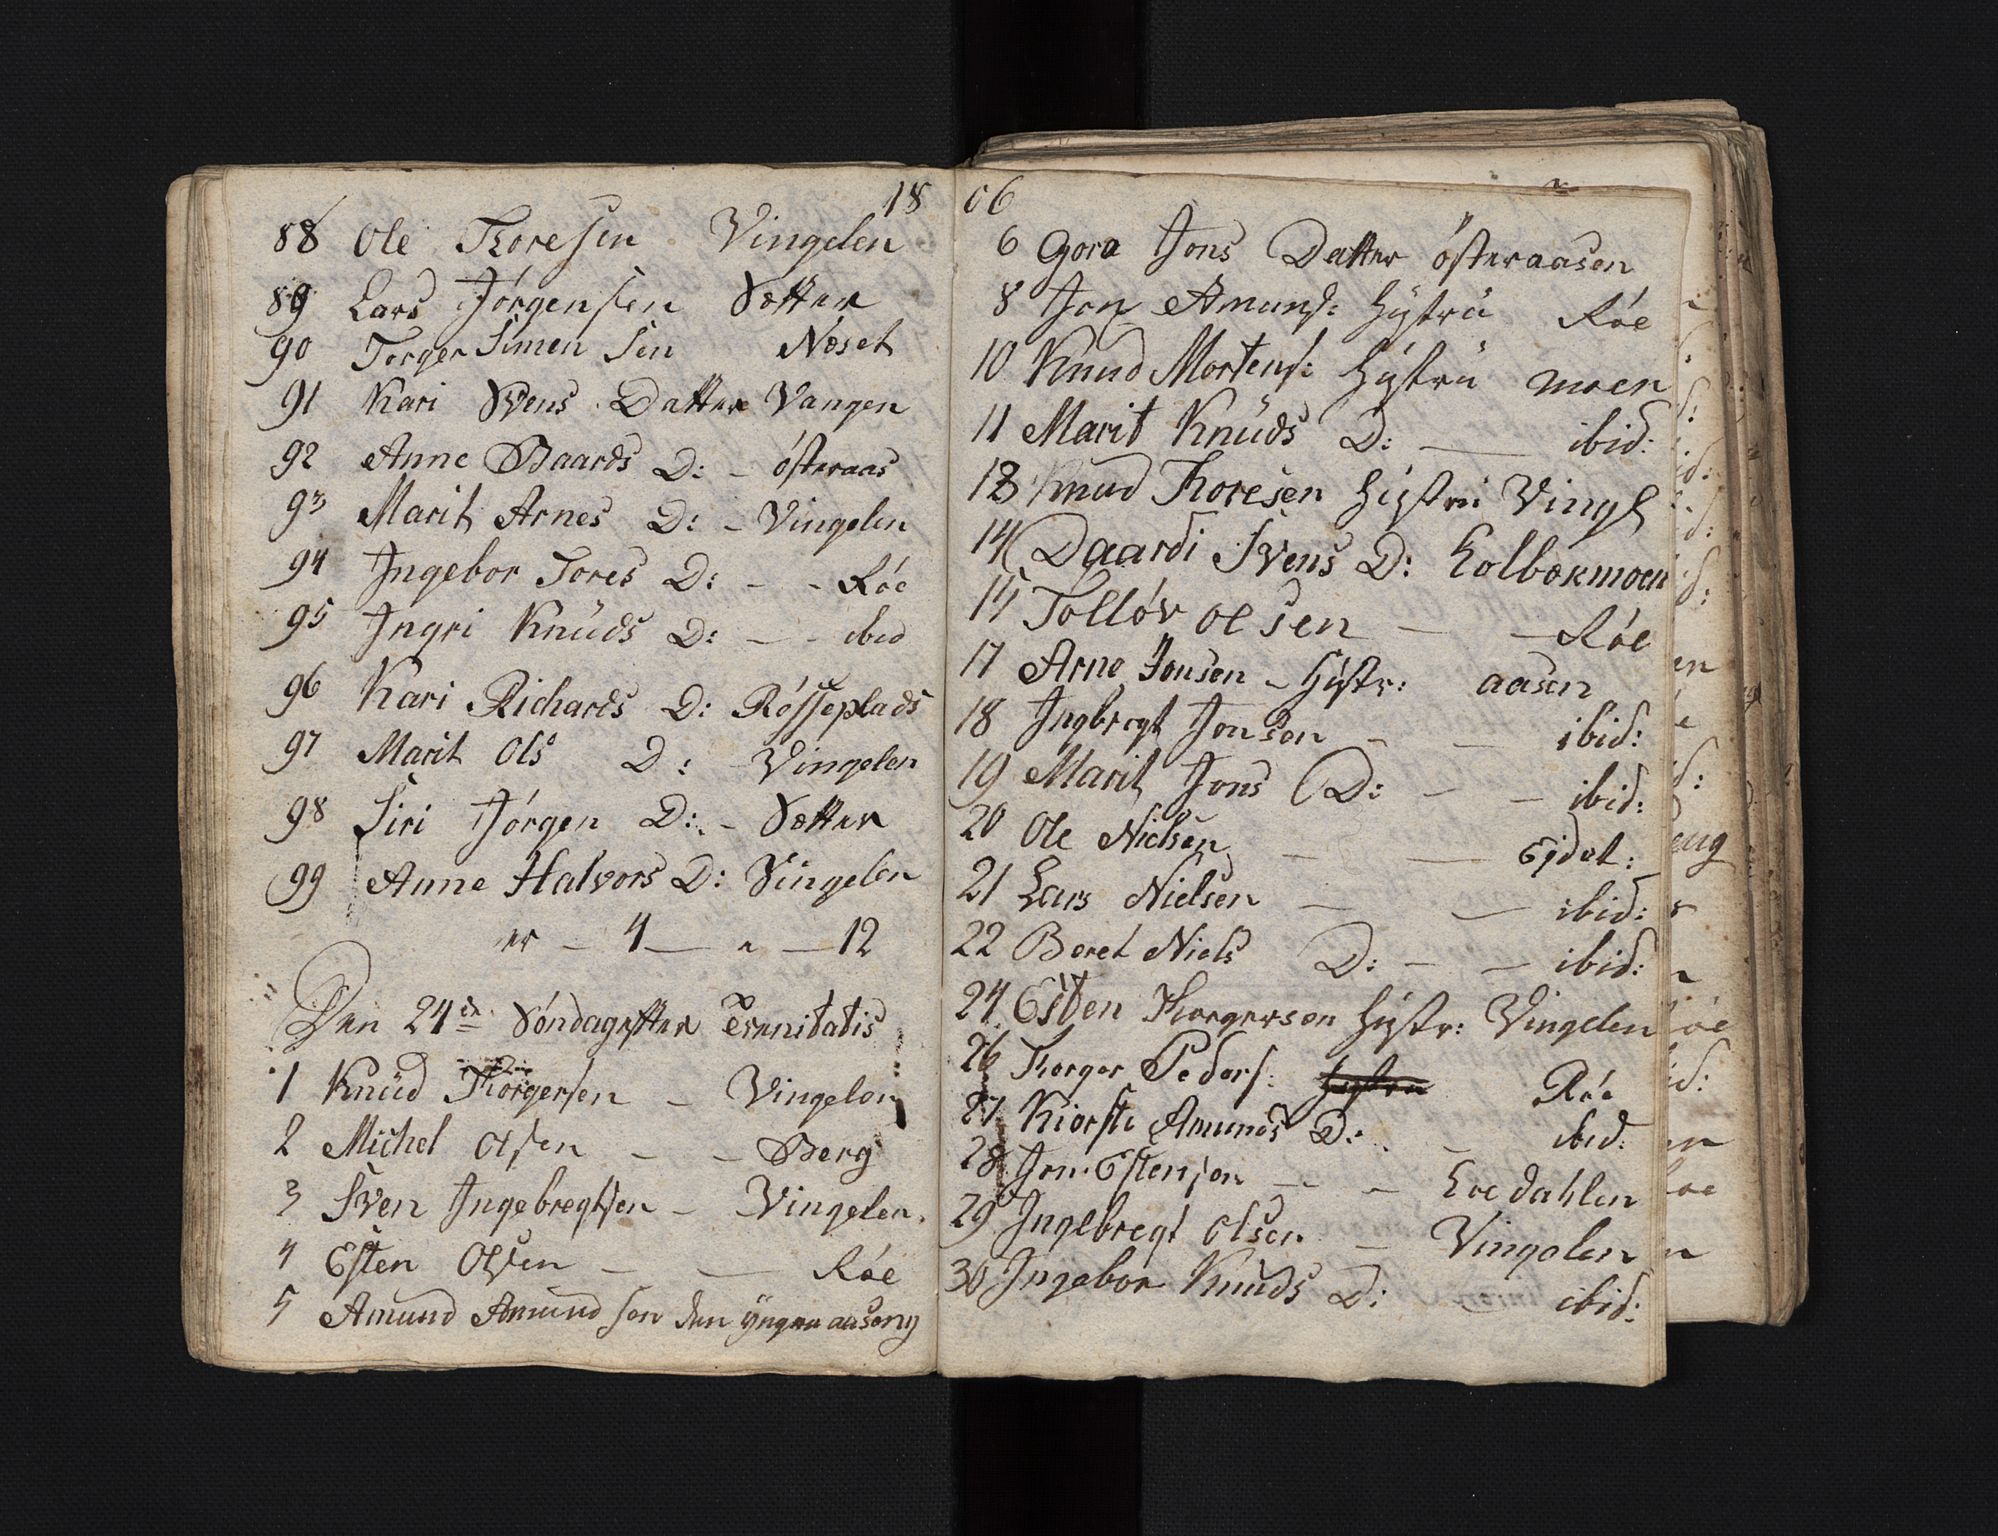 18
88 Ole Toresen Vingelen
89 Lars Jörgensen Sætter
90 Torger Simen Sen Næset
91 Kari Svens Datter Vangen
92 Anne Baards D: – österaas
93 Marit Arnes D: – Vingelen
94 Jngebor Tores D: – – Röe
95 Jngri Knüds D: – – ibid
96 Kari Richards D: Rösseplads
97 Marit Ols D: Vingelen
98 Siri Jörgen D: – Sætter
99 Anne Halvors D: Vingelen
4 — 12
Den 24de Söndag efter Trenitatis
1 Knüd Thorgersen – Vingelen
2 Michel Olsen – – Berg
3 Sven Jngebregtsen – Vingelen
4 Esten Olsen – — Röe
5 Amund Amundsen den yngre aaseng
06
6 Gora Jons Datter österaasen
8 Jon Amunds: Hystrü Röe
10 Knud Mortens: Hystrü moen
11 Marit Knüds D: — ibid:
12 Knud Toresen Hystrü Vingl
14 Baardi Svens D: Kolbækmoen
15 Tollöv Olsen — — Röe
17 Arne Jonsen – Hystr: aasen
18 Jngbregt Jonsen – — ibid:
19 Marit Jons D: – – ibid:
20 Ole Nielsen – — Eidet:
21 Lars Nielsen — — ibid:
22 Beret Niels D: – — ibid:
24 Esten Thorgersen Hystr: Vingelen
26 Torger Peders: Hystrü Röe
27 Kiersti Amunds D: – ibid:
28 Jon Estensen – – Loedahlen
29 Jngebregt Olsen — Vingelen
30 Jngebor Knuds D: ibid: